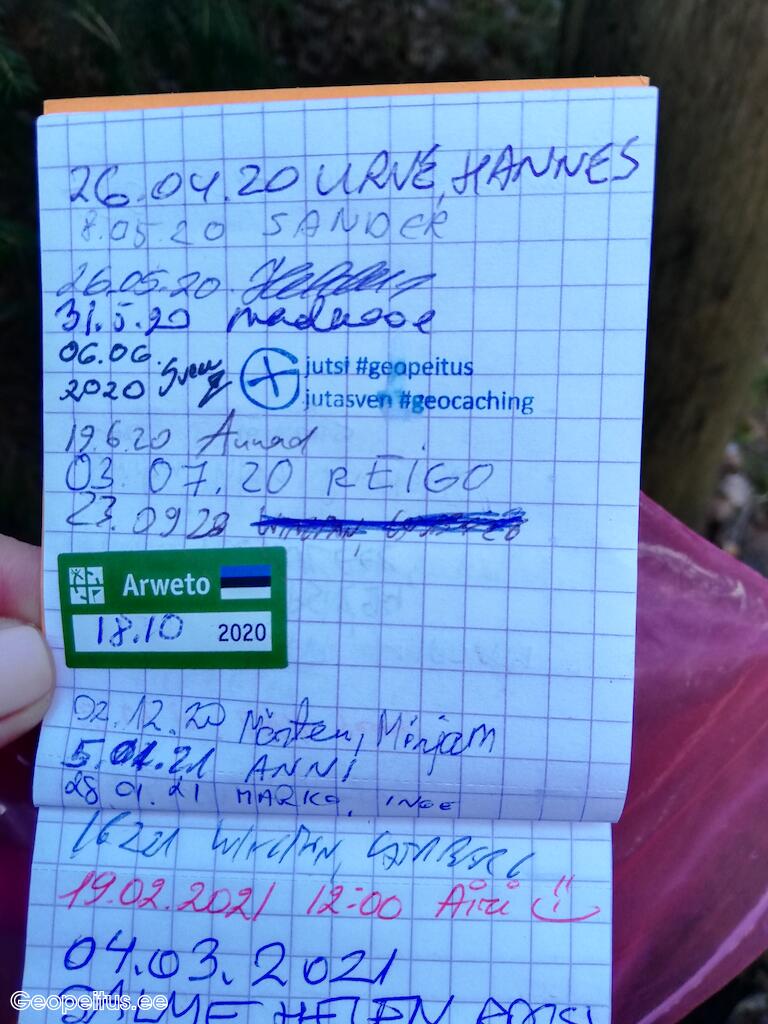 26.04.20 URVE, HANNES
8.05.20 SANDER
26.05.20
31.5.20
06.06.
2020 Sven
jutsi #geopeitus
jutasven #geocaching
19.6.20
03.07.20 REIGO
23.09 20
Arweto
18.10 2020
02.12.20 Mårten, Mirjam
5.01.21 ANNI
28 01.21 MARKO, INGE
16 2 21
19.02.2021 12:00 Airi
04.03.2021
HELEN
Geopeitus.ee